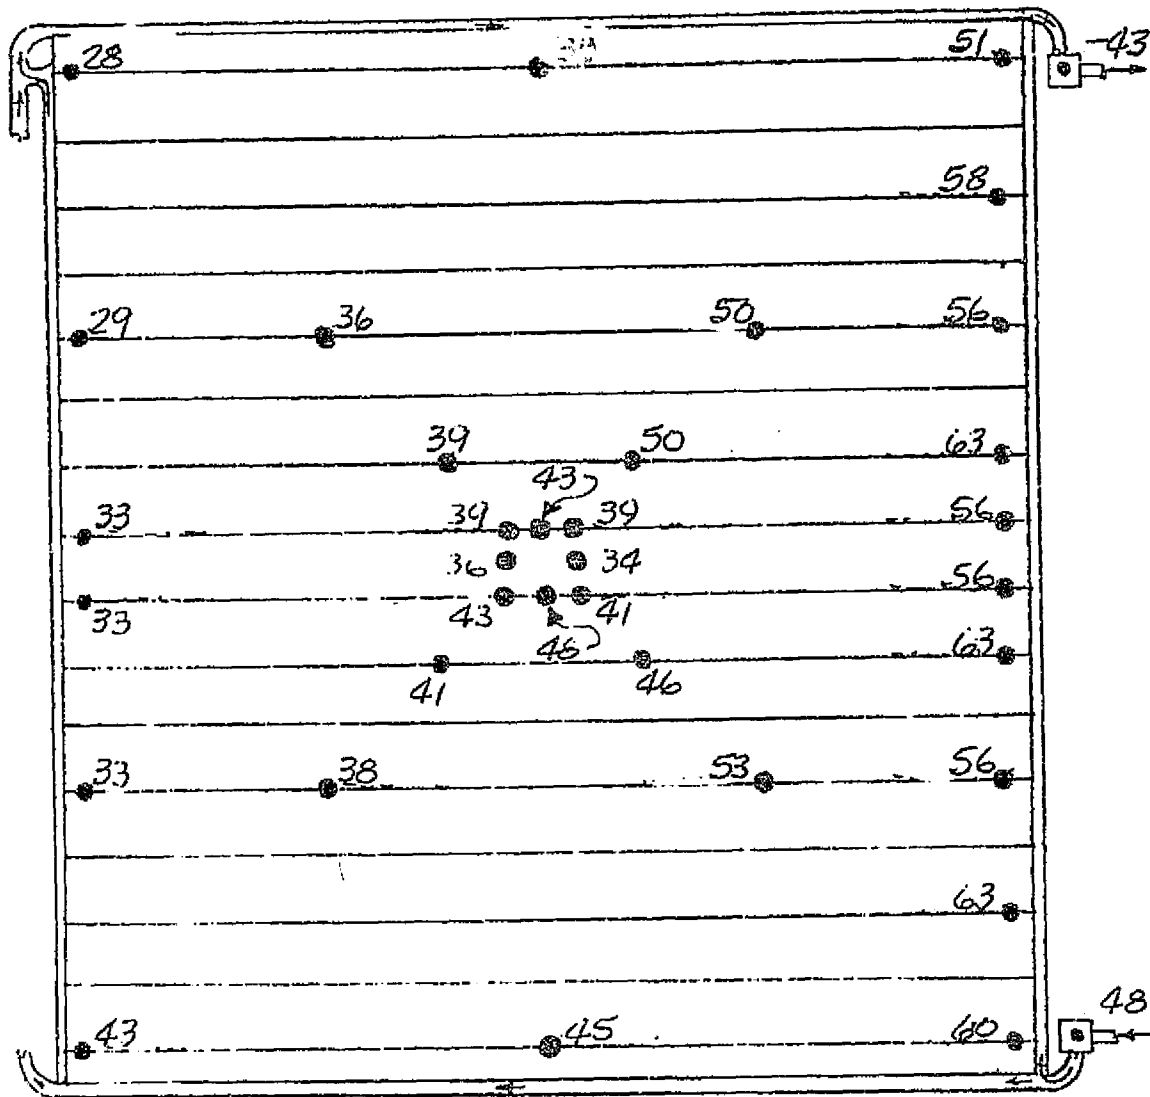 28 51 -43
58
29 36 50 56
39 50 63
43
33 39 39 56
36 34
33 43 41 56
48
41 46 63
33 38 53 56
63
43 45 60 48